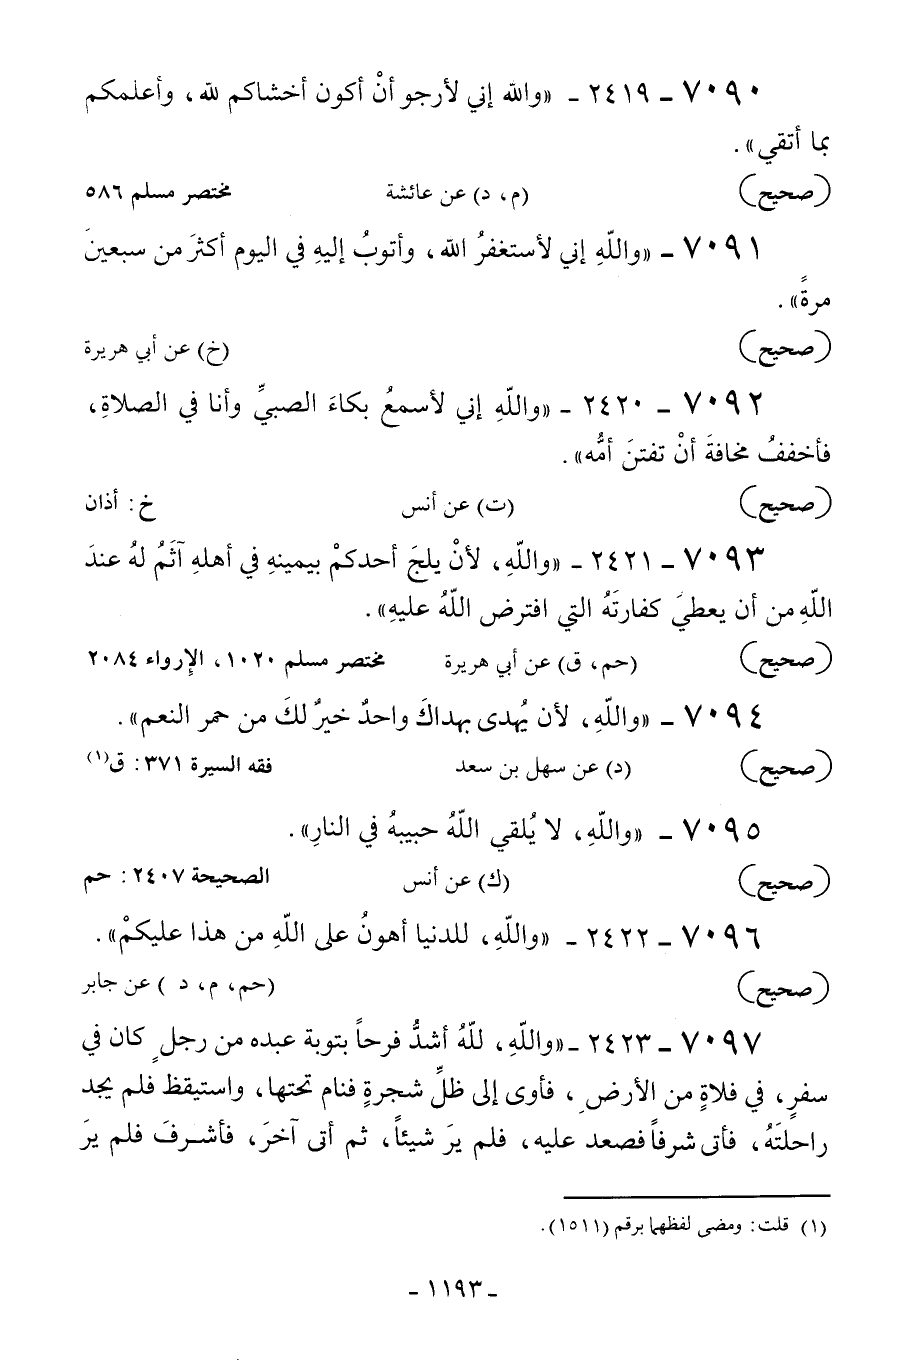 ٧٠٩٠ - ٢٤١٩ - «والله إني لأرجو أنْ أكون أخشاكم لله، وأعلمكم
بما أتقي».
(صحيح) (م، د) عن عائشة مختصر مسلم ٥٨٦
٧٠٩١ - «واللّهِ إني لأستغفرُ الله، وأتوبُ إليهِ في اليوم أكثرَ من سبعينَ
مرةً».
(صحيح) (خ) عن أبي هريرة
٧٠٩٢ - ٢٤٢٠ - «واللّهِ إني لأسمعُ بكاءَ الصبيِّ وأنا في الصلاةِ،
فأخففُ مخافةَ أنْ تفتنَ أمُّه».
(صحيح) (ت) عن أنس خ: أذان
٧٠٩٣ - ٢٤٢١ - «واللّهِ، لأنْ يلجَ أحدكمْ بيمينهِ في أهلهِ آثَمُ لهُ عندَ
اللّهِ من أن يعطيَ كفارتَهُ التي افترض اللّهُ عليهِ».
(صحيح) (حم، ق) عن أبي هريرة مختصر مسلم ١٠٢٠، الإرواء ٢٠٨٤
٧٠٩٤ - «واللّهِ، لأن يُهدى بهداكَ واحدٌ خيرٌ لكَ من حمر النعم».
(صحيح) (د) عن سهل بن سعد فقه السيرة ٣٧١: ق(١)
٧٠٩٥ - «واللّهِ، لا يُلقي اللّهُ حبيبهُ في النارِ».
(صحيح) (ك) عن أنس الصحيحة ٢٤٠٧: حم
٧٠٩٦ - ٢٤٢٢ - «واللّهِ، للدنيا أهونُ على اللّهِ من هذا عليكمْ».
(صحيح) (حم، م، د ) عن جابر
٧٠٩٧ - ٢٤٢٣ - «واللّهِ، للّهُ أشدُّ فرحاً بتوبة عبده من رجلٍ كان في
سفرٍ، في فلاةٍ من الأرضِ، فأوى إلى ظلِّ شجرةٍ فنام تحتها، واستيقظ فلم يجد
راحلتَهُ، فأتى شرفاً فصعد عليه، فلم يرَ شيئاً، ثم أتى آخرَ، فأشـرفَ فلم يرَ
(١) قلت: ومضى لفظهما برقم (١٥١١).
- ١١٩٣ -